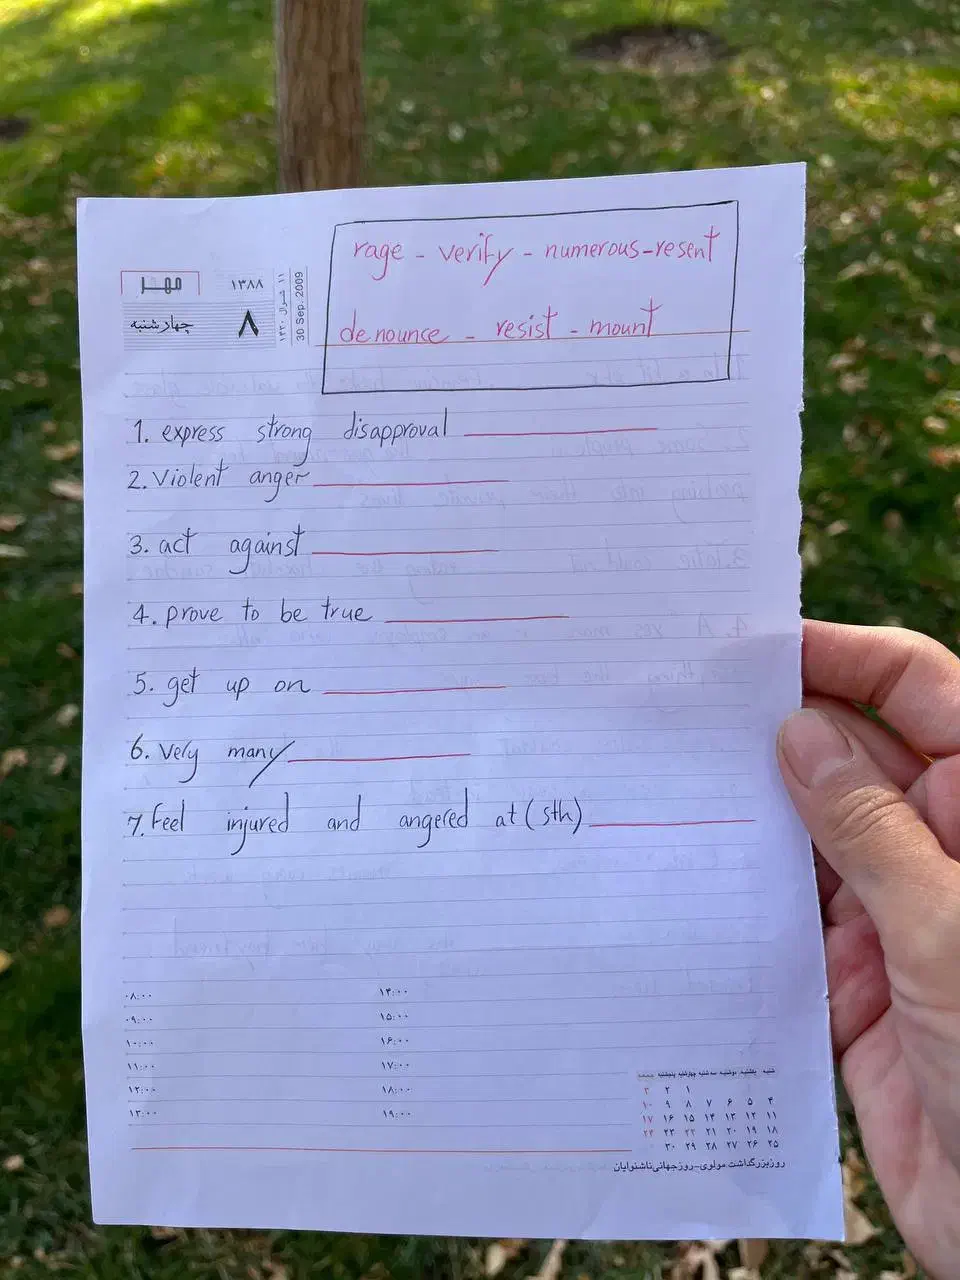 rage - verify - numerous - resent
denounce - resist - mount
مهر
۱۳۸۸
چهارشنبه
۸
۱۱ شوال ۱۴۳۰
30 Sep. 2009
1. express strong disapproval
2. Violent anger
3. act against
4. prove to be true
5. get up on
6. Very many
7. Feel injured and angered at (sth)
۰۸:۰۰ ۱۴:۰۰
۰۹:۰۰ ۱۵:۰۰
۱۰:۰۰ ۱۶:۰۰
۱۱:۰۰ ۱۷:۰۰
۱۲:۰۰ ۱۸:۰۰
۱۳:۰۰ ۱۹:۰۰
شنبه یکشنبه دوشنبه سه شنبه چهارشنبه پنجشنبه جمعه
۱ ۲ ۳
۴ ۵ ۶ ۷ ۸ ۹ ۱۰
۱۱ ۱۲ ۱۳ ۱۴ ۱۵ ۱۶ ۱۷
۱۸ ۱۹ ۲۰ ۲۱ ۲۲ ۲۳ ۲۴
۲۵ ۲۶ ۲۷ ۲۸ ۲۹ ۳۰
روز بزرگداشت مولوی-روز جهانی ناشنوایان